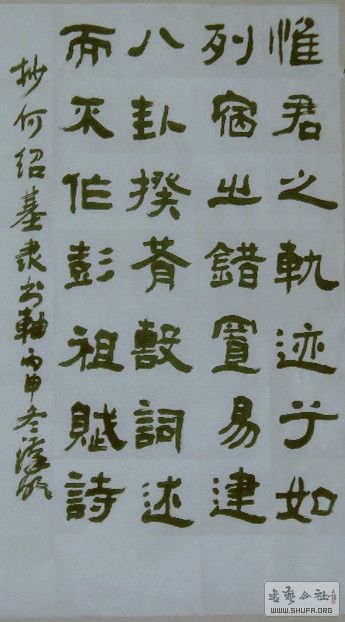 惟君之軌迹兮如
列宿之錯置易建
八卦揆肴毄詞述
而不作彭祖賦詩
抄何绍基隶书軸丙申冬
书艺公社
WWW.SHUFA.ORG